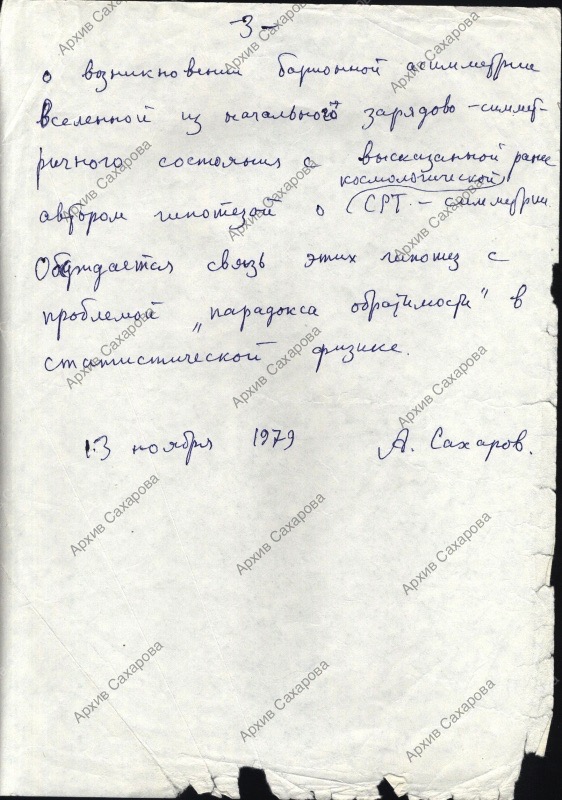 -3-
о возникновении барионной асимметрии
вселенной из начального зарядово-симмет-
ричного состояния с высказанной ранее
космологической
автором гипотезой о CPT-симметрии.
Обсуждается связь этих гипотез с
проблемой „парадокса обратимости" в
статистической физике.
13 ноября 1979 А. Сахаров.
Архив Сахарова
Архив Сахарова
Архив Сахарова
Архив Сахарова
Архив Сахарова
Архив Сахарова
Архив Сахарова
Архив Сахарова
Архив Сахарова
Архив Сахарова
Архив Сахарова
Архив Сахарова
Архив Сахарова
Архив Сахарова
Архив Сахарова